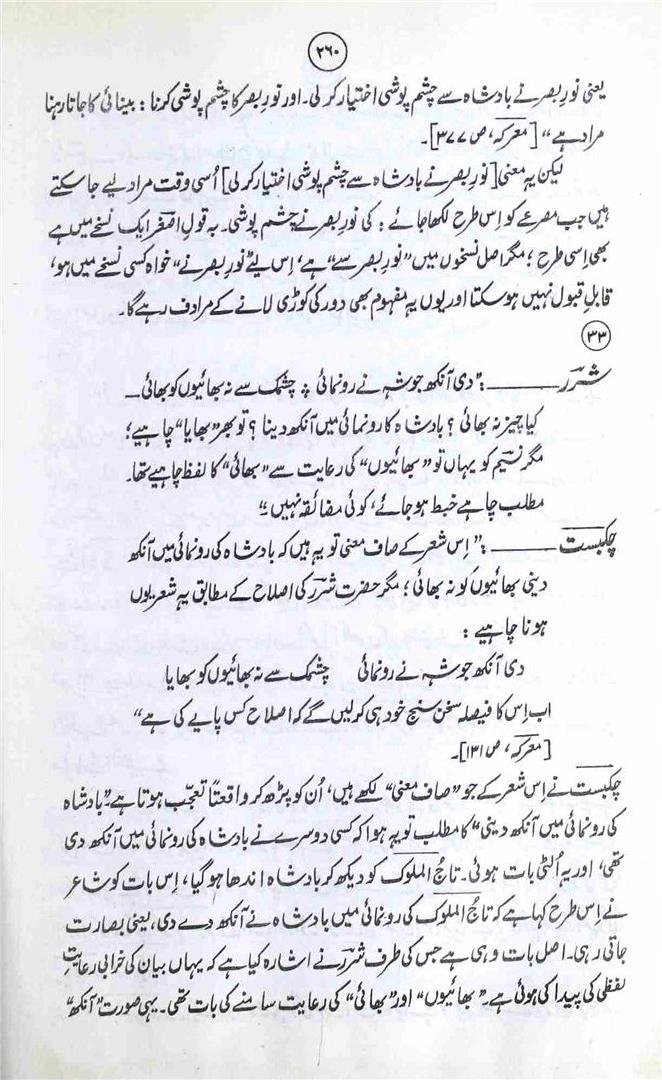 ۲۶۰
یعنی نورِ بصر نے بادشاہ سے چشم پوشی اختیار کر لی۔ اور نورِ بصر کا چشم پوشی کرنا : بینائی کا جاتا رہنا
مراد ہے“ [معرکہ، ص ۳۷۷]۔
لیکن یہ معنی [نورِ بصر نے بادشاہ سے چشم پوشی اختیار کر لی] اُسی وقت مراد لیے جا سکتے
ہیں جب مصرعے کو اِس طرح لکھا جائے : کی نورِ بصر نے چشم پوشی۔ بہ قولِ اصغر ایک نسخے میں ہے
بھی اِسی طرح ؛ مگر اصل نسخوں میں ”نورِ بصر سے“ ہے، اِس لیے ”نورِ بصر نے“ خواہ کسی نسخے میں ہو،
قابلِ قبول نہیں ہو سکتا اور یوں یہ مفہوم بھی دور کی کوڑی لانے کے مرادف رہے گا۔
۳۳
شرر ــــــــ :” دی آنکھ جو شہ نے رونمائی ؛ چشمک سے نہ بھائیوں کو بھائی ــ
کیا چیز نہ بھائی ؟ بادشاہ کا رونمائی میں آنکھ دینا ؟ تو پھر ”بھایا“ چاہیے ؛
مگر نسیم کو یہاں تو ”بھائیوں“ کی رعایت سے ”بھائی“ کا لفظ چاہیے تھا۔
مطلب چاہے خبط ہو جائے، کوئی مضائقہ نہیں“۔
چکبست ــــــــ :” اِس شعر کے صاف معنی تو یہ ہیں کہ بادشاہ کی رونمائی میں آنکھ
دینی بھائیوں کو نہ بھائی ؛ مگر حضرت شرر کی اصلاح کے مطابق یہ شعر یوں
ہونا چاہیے :
دی آنکھ جو شہ نے رونمائی چشمک سے نہ بھائیوں کو بھایا
اب اِس کا فیصلہ سخن سنج خود ہی کر لیں گے کہ اصلاح کس پایے کی ہے“
[معرکہ، ص ۱۳۱]۔
چکبست نے اِس شعر کے جو ”صاف معنی“ لکھے ہیں، اُن کو پڑھ کر واقعتاً تعجب ہوتا ہے۔ ”بادشاہ
کی رونمائی میں آنکھ دینی“ کا مطلب تو یہ ہوا کہ کسی دوسرے نے بادشاہ کی رونمائی میں آنکھ دی
تھی، اور یہ اُلٹی بات ہوئی۔ تاج الملوک کو دیکھ کر بادشاہ اندھا ہو گیا، اِس بات کو شاعر
نے اِس طرح کہا ہے کہ تاج الملوک کی رونمائی میں بادشاہ نے آنکھ دے دی، یعنی بصارت
جاتی رہی۔ اصل بات وہی ہے جس کی طرف شرر نے اشارہ کیا ہے کہ یہاں بیان کی خرابی رعایتِ
لفظی کی پیدا کی ہوئی ہے۔ ”بھائیوں“ اور ”بھائی“ کی رعایت سامنے کی بات تھی۔ یہی صورت ”آنکھ“